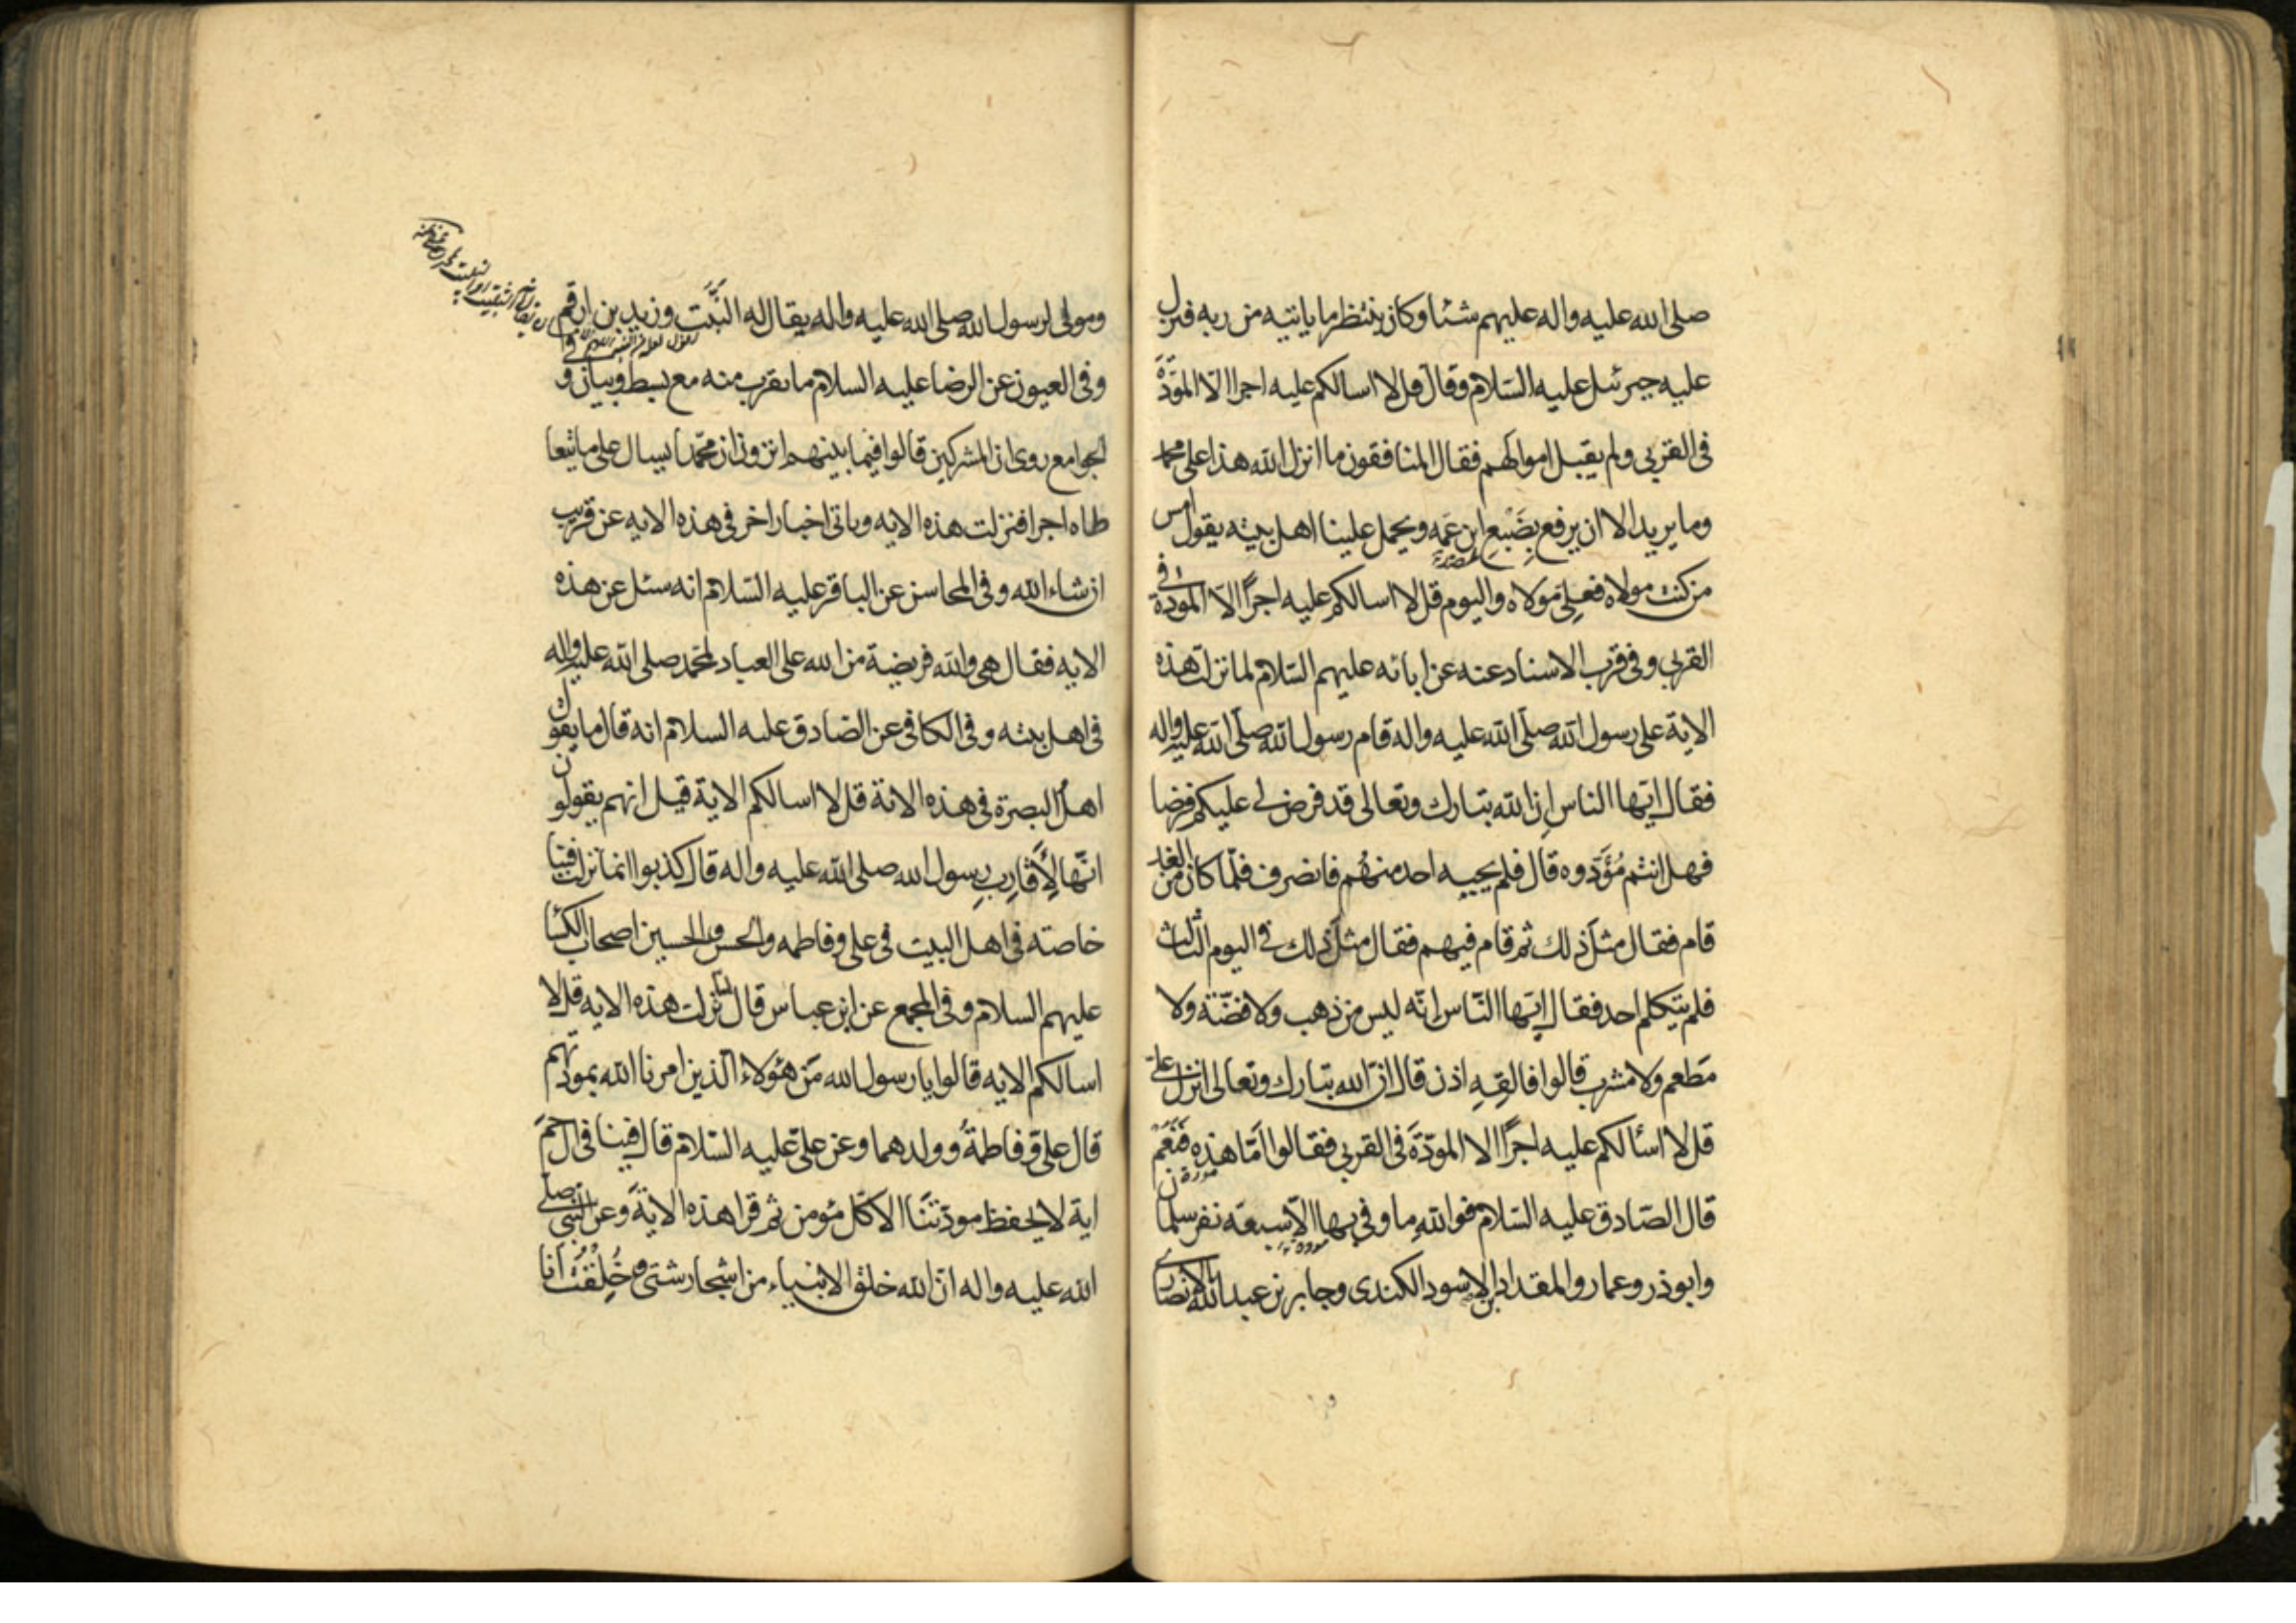 صلى الله عليه واله عليهم شئا وكان ينتظر ما ياتيه من ربه فنزل
عليه جبرئيل عليه السّلام وقال قل لا اسالكم عليه اجرا الّا المَوَدَّةَ
فى القربى ولم يقبل اموالهم فقال المنافقون ما انزل الله هذا على محمد
وما يريد الا ان يرفع بِضَبْعِ ابن عَمه ويحمل علينا اهل بيته يقول امس
من كنت مولاه فعلىّ مولاه واليوم قل لا اسالكم عليه اجرًا الّا المودة فى
القربى وفى قرب الاسناد عنه عن ابائه عليهم السّلام لما نزلت هذه
الاية على رسول الله صلّى الله عليه واله قام رسول الله صلّى الله عليه واله
فقال ايّها الناس ان الله تبارك وتعالى قد فرض لى عليكم فرضا
فهل انتم مُؤَدّوه قال فلم يجبه احد منهُم فانصرف فلمّا كان من الغد
قام فقال مثل ذلك ثم قام فيهم فقال مثل ذلك فى اليوم الثالث
فلم يتكلم احد فقال ايّها النّاس انّه ليس من ذهب ولا فضّة ولا
مَطعم ولا مشرب قالوا فالقِهِ اذن قال انّ الله تبارك وتعالى انزل علىّ
قل لا اسئالكم عليه اجرًا الا المودّةَ فى القربى فقالوا امّا هذه فنَعَمْ
قال الصّادق عليه السّلام فوالله ما وفى بها الّا سبعة نفر سلمان
وابوذر وعمار والمقداد ابن الاسود الكندى وجابر بن عبدالله الانصارى
ومولى لرسول الله صلى الله عليه واله يقال له الثبيت وزيد بن ارقم
وفى العيون عن الرضا عليه السلام ما يقرب منه مع بسط وبيان وفى
الجوامع روى ان المشركين قالوا فيما بينهم اترون ان محمّدا يسال على ما يتعا
طاه اجرا فنزلت هذه الايه وياتى اخبار اخر فى هذه الايه عن قريب
ان شاء الله وفى المحاسن عن الباقر عليه السّلام انه سئل عن هذه
الايه فقال هى والله فريضة من الله على العباد لمحمّد صلى الله عليه واله
فى اهل بيته وفى الكافى عن الصادق عليه السلام انه قال ما يقول
اهل البصرة فى هذه الاية قل لا اسالكم الاية قيل انهم يقولون
انّها لِأَقارِب رسول الله صلى الله عليه واله قال كذبوا انما نزلت فينا
خاصته فى اهل البيت فى على وفاطمه والحسن والحسين اصحاب الكسا
عليهم السلام وفى المجمع عن ابن عباس قال لما نزلت هذه الايه قل لا
اسالكم الايه قالوا يا رسول الله مَن هؤلاء الّذين امرنا الله بمودّتهم
قال علىّ وفاطمةُ وولدهما وعن علىّ عليه السّلام قال فينا فى ال حمَ
اية لا يحفظ مودّتنَا الا كلّ مؤمن ثم قرا هذه الايَة وعن النّبى صلى
الله عليه واله انّ الله خلق الانبياء من اشجار شتى وخُلِقْتُ أنا